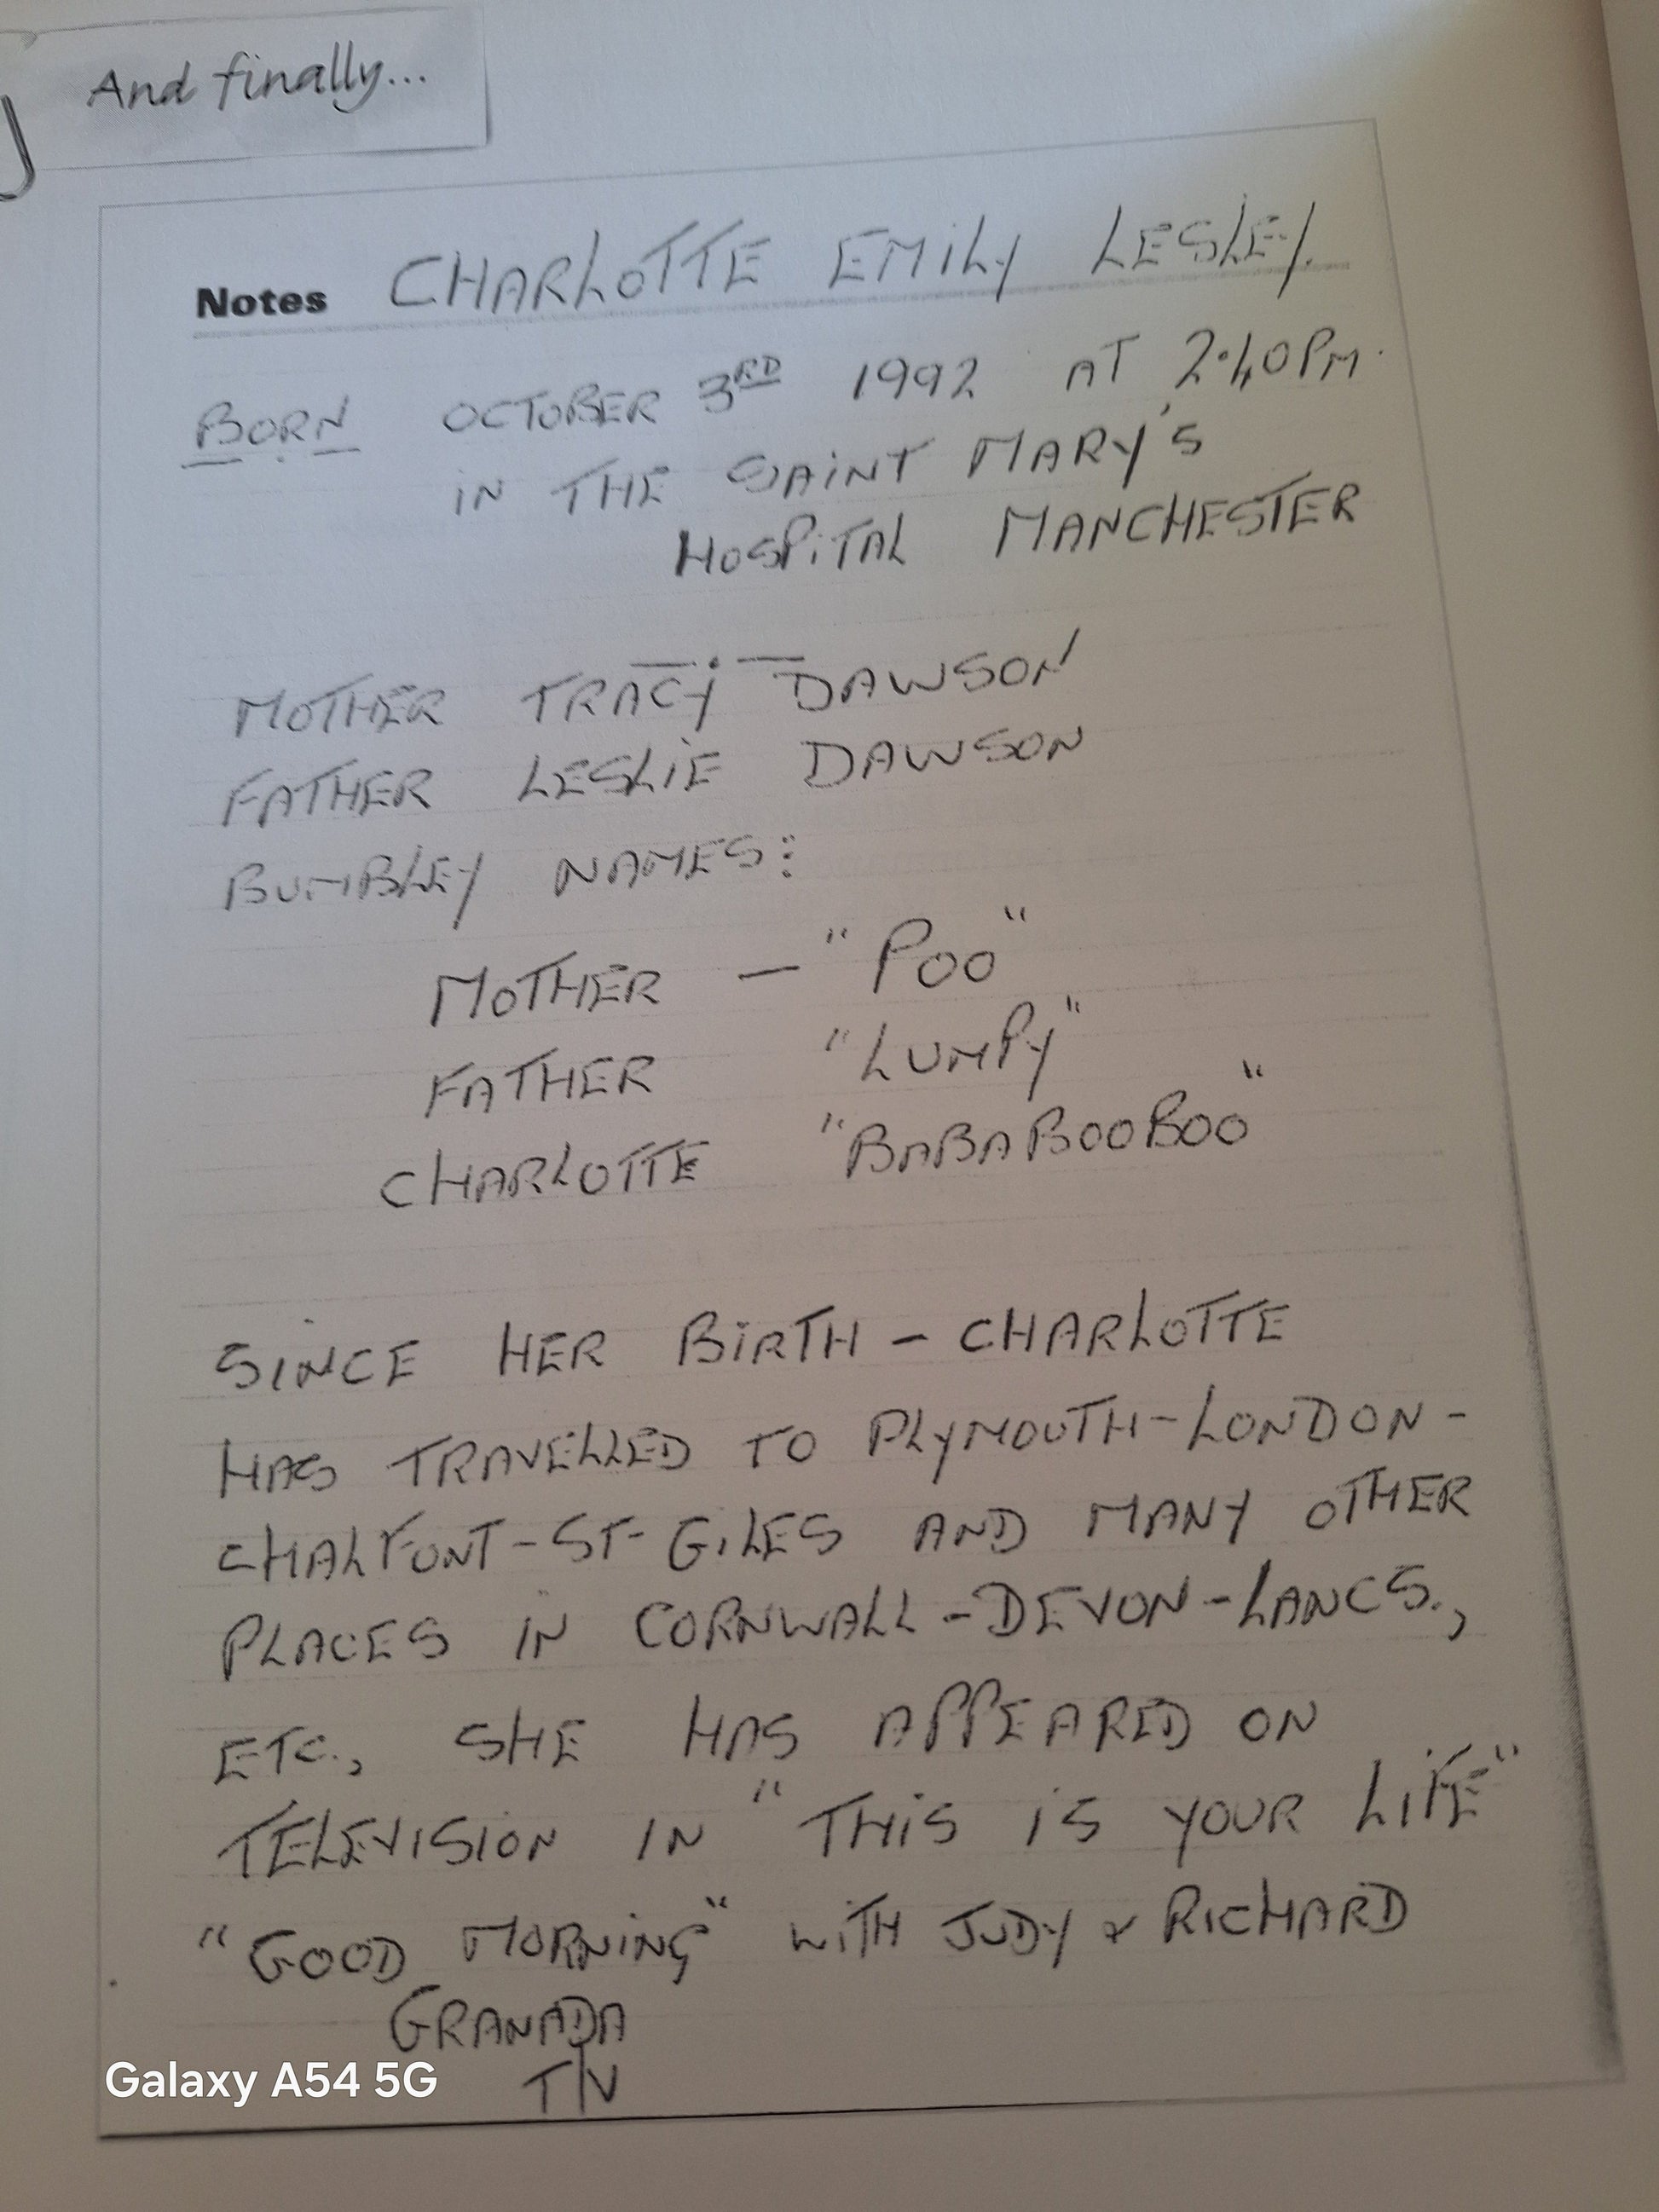 And finally...
Notes CHARLOTTE EMILY LESLEY.
BORN OCTOBER 3RD 1992 AT 2.40PM.
IN THE SAINT MARY'S
HOSPITAL MANCHESTER
MOTHER TRACY DAWSON
FATHER LESLIE DAWSON
BUMBLEY NAMES:
MOTHER — "POO"
FATHER "LUMPY"
CHARLOTTE "BABABOOBOO"
SINCE HER BIRTH - CHARLOTTE
HAS TRAVELLED TO PLYMOUTH-LONDON-
CHALFONT-ST-GILES AND MANY OTHER
PLACES IN CORNWALL-DEVON-LANCS.,
ETC., SHE HAS APPEARED ON
TELEVISION IN "THIS IS YOUR LIFE"
"GOOD MORNING" WITH JUDY & RICHARD
GRANADA
T/V
Galaxy A54 5G